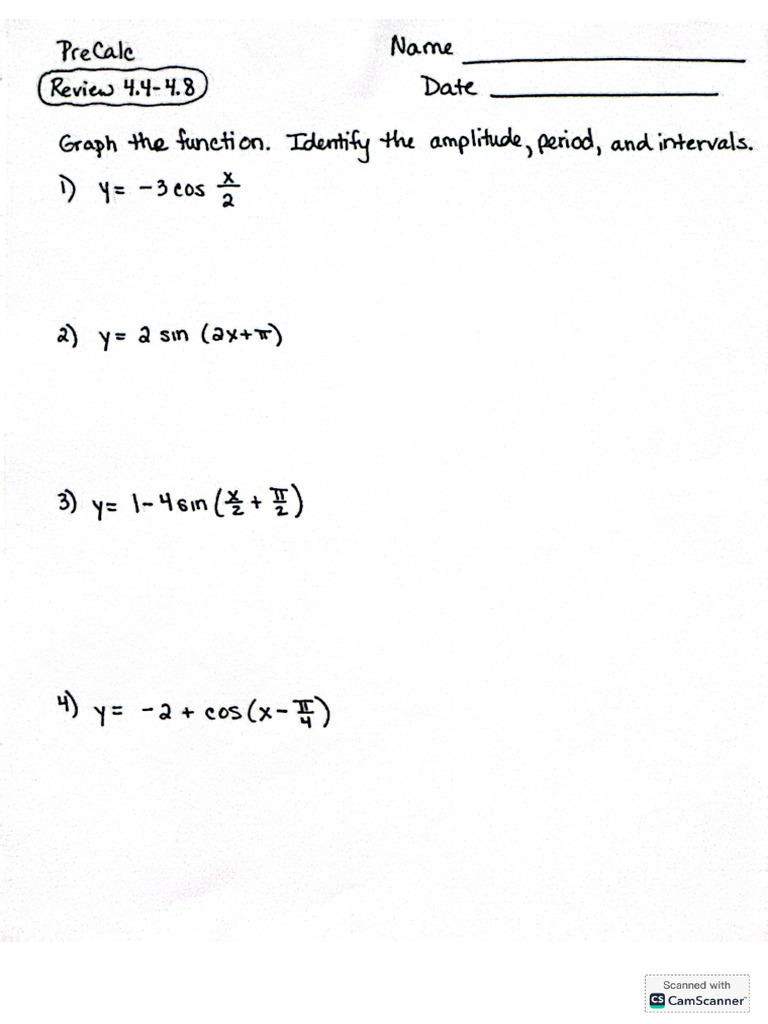 PreCalc
Name
Review 4.4-4.8
Date
Graph the function. Identify the amplitude, period, and intervals.
1) y = -3 cos x/2
2) y = 2 sin (2x+π)
3) y = 1-4 sin (x/2 + π/2)
4) y = -2 + cos (x - π/4)
Scanned with
CS CamScanner